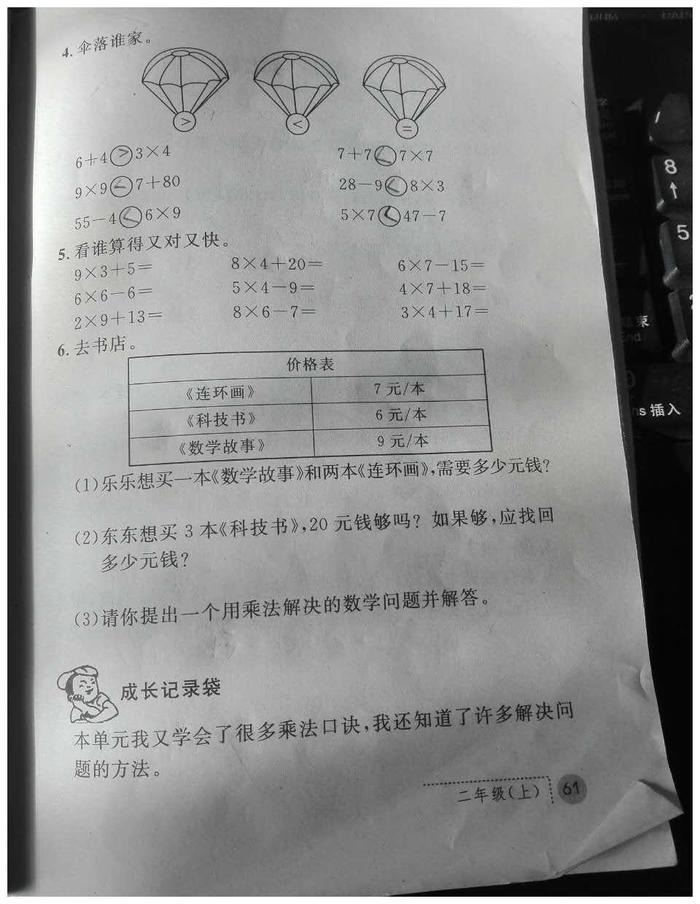 4. 伞落谁家。
> < =
6+4>3×4 7+7<7×7
9×9<7+80 28-9<8×3
55-4<6×9 5×7<47-7
5. 看谁算得又对又快。
9×3+5= 8×4+20= 6×7-15=
6×6-6= 5×4-9= 4×7+18=
2×9+13= 8×6-7= 3×4+17=
6. 去书店。
价格表
《连环画》 7 元/本
《科技书》 6 元/本
《数学故事》 9 元/本
(1)乐乐想买一本《数学故事》和两本《连环画》,需要多少元钱?
(2)东东想买 3 本《科技书》,20 元钱够吗? 如果够,应找回
多少元钱?
(3)请你提出一个用乘法解决的数学问题并解答。
成长记录袋
本单元我又学会了很多乘法口诀,我还知道了许多解决问
题的方法。
二年级(上) 61
/
8
↑
5
End
Ins 插入